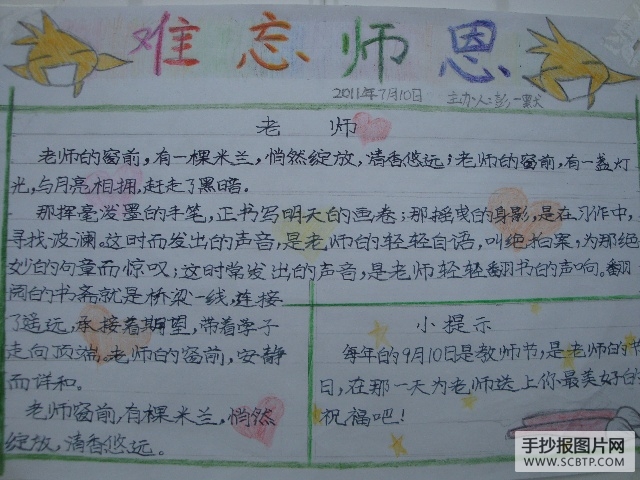 难忘师恩
2011年7月10日 主办人:彭一默
老 师
老师的窗前,有一棵米兰,悄然绽放,清香悠远;老师的窗前,有一盏灯
光,与月亮相拥,赶走了黑暗.
那挥毫泼墨的手笔,正书写明天的画卷;那摇曳的身影,是在习作中,
寻找波澜。这时而发出的声音,是老师的轻轻自语,叫绝拍案,为那绝
妙的句章而惊叹;这时常发出的声音,是老师轻轻翻书的声响。翻
阅的书斋就是桥梁一线,连接
了遥远,承接着期望,带着学子
走向顶端。老师的窗前,安静
而详和。
老师窗前,有棵米兰,悄然
绽放,清香悠远。
小提示
每年的9月10日是教师节,是老师的节
日,在那一天为老师送上你最美好的
祝福吧!
手抄报图片网
WWW.SCBTP.COM